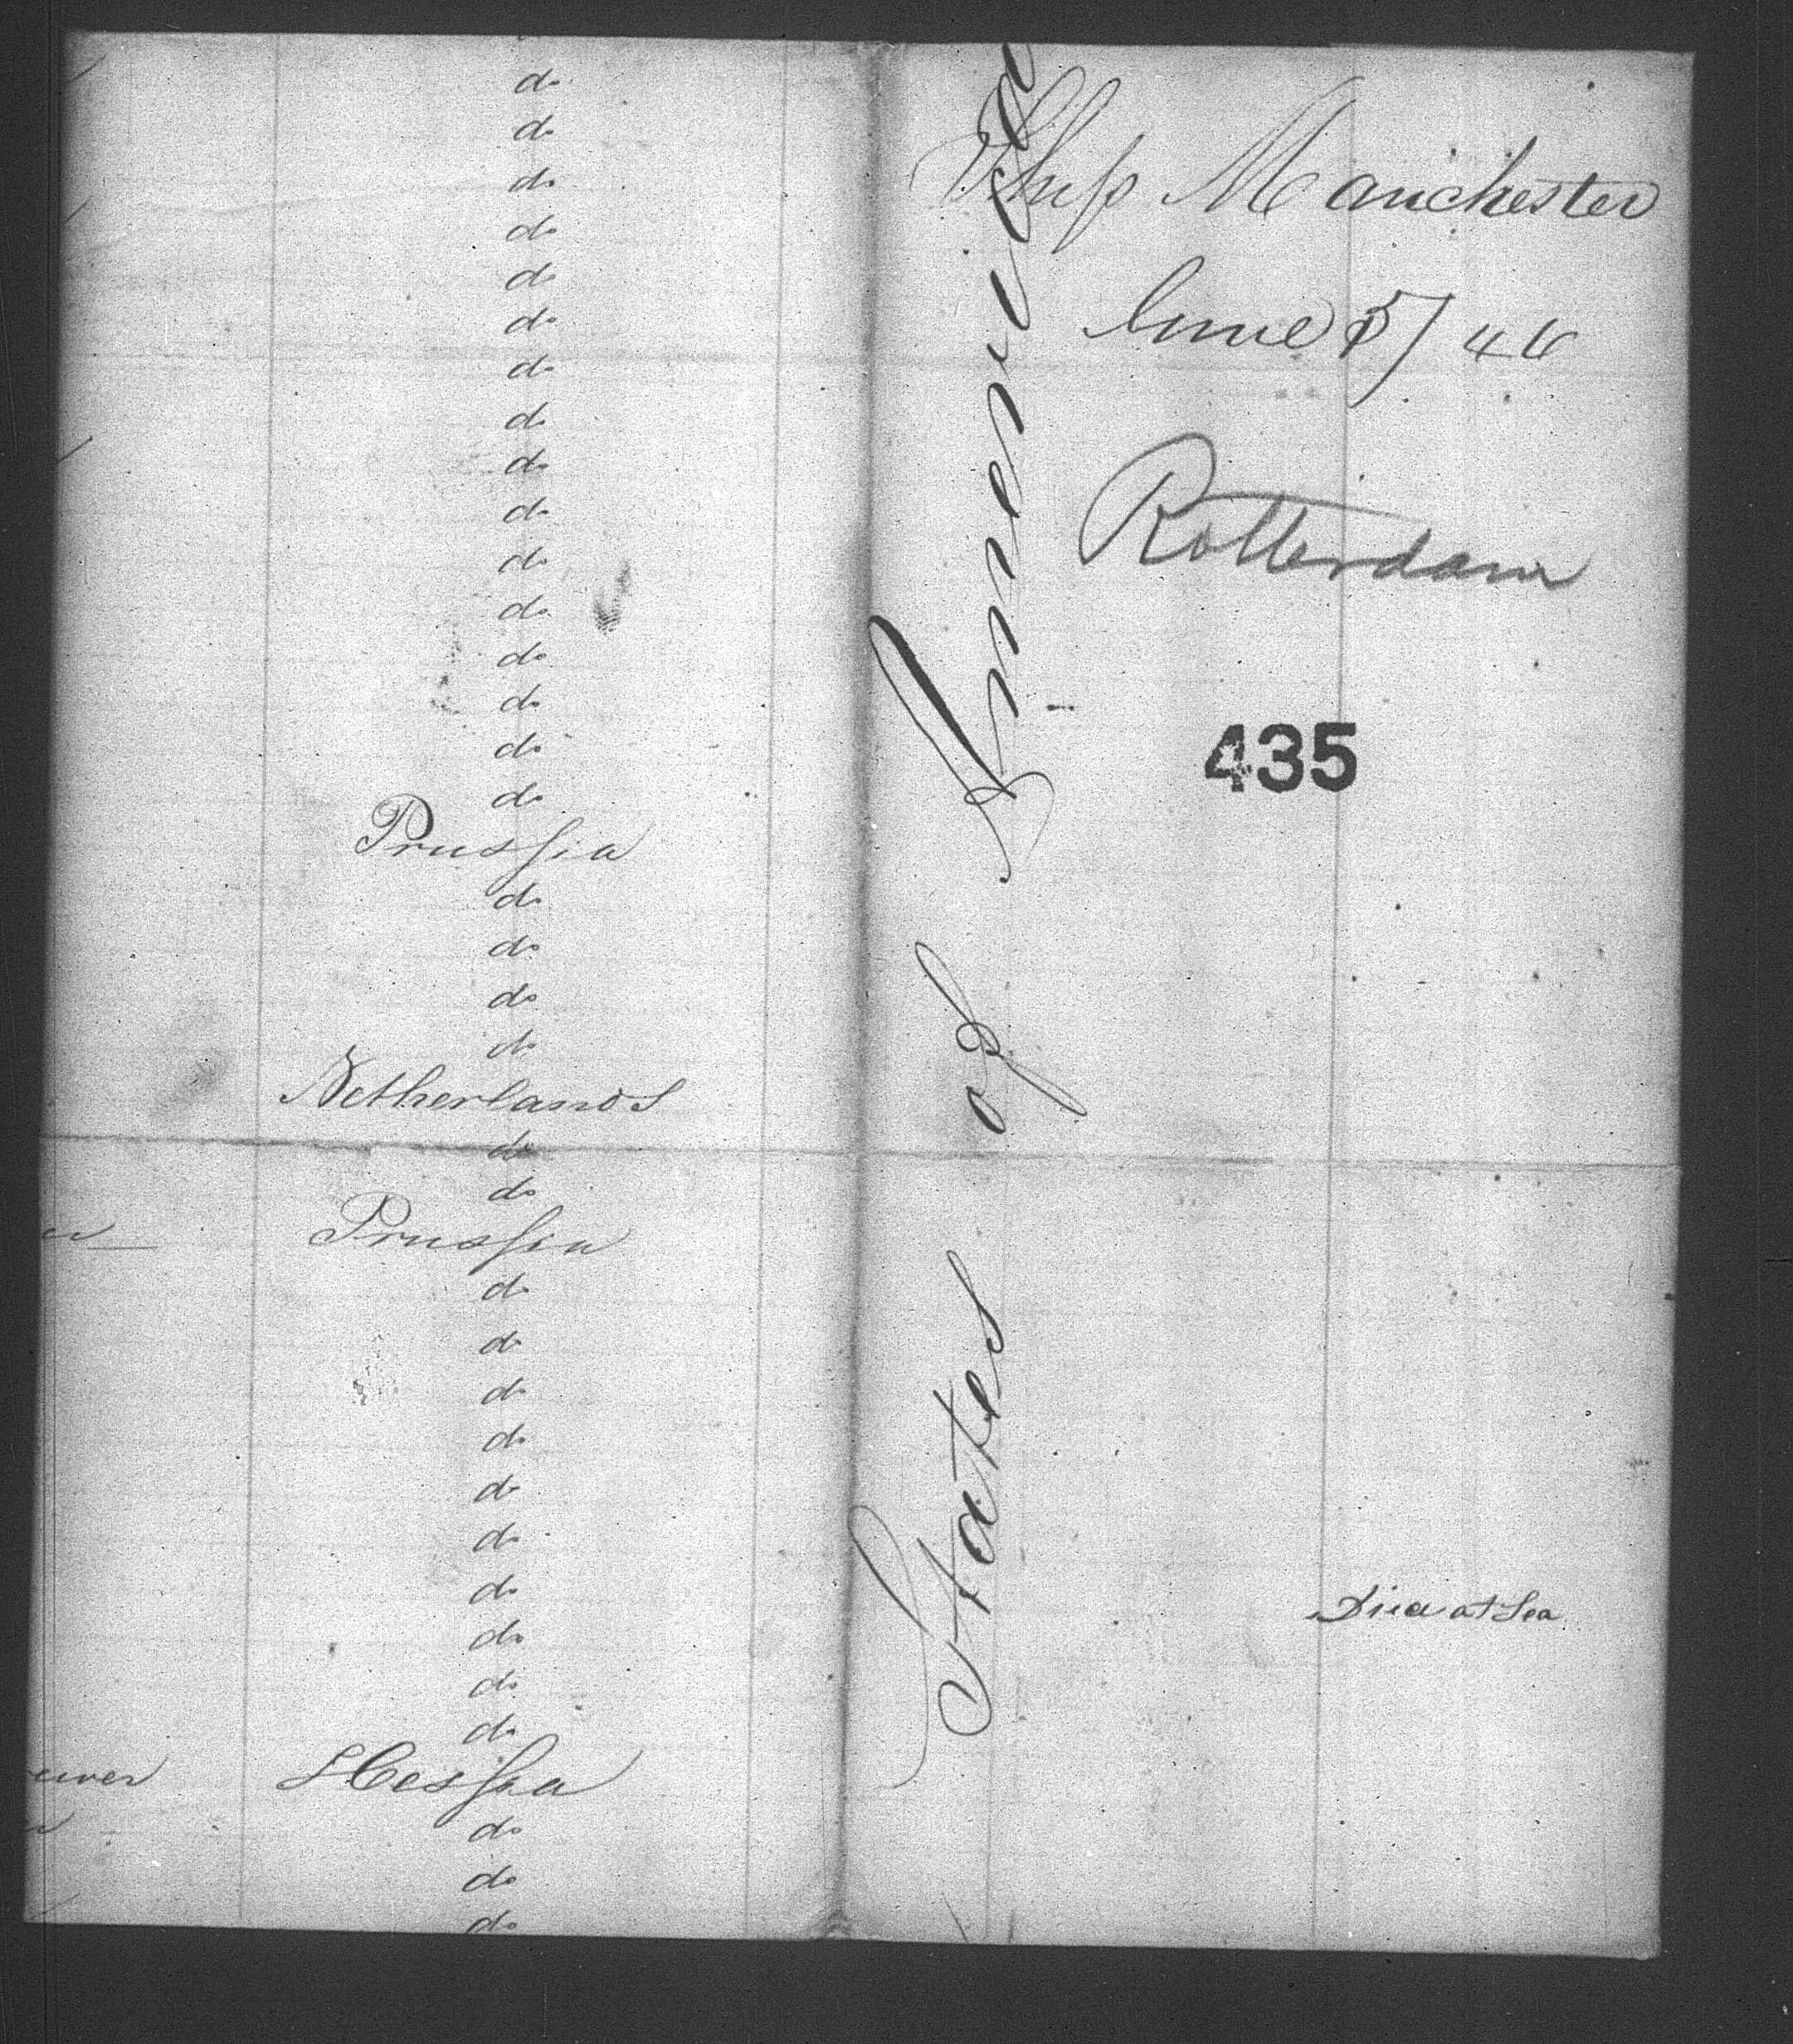 do
do
do
do
do
do
do
do
do
do
do
do
do
do
do
do
Prussia
do
do
do
do
Netherlands
do
do
Prussia
do
do
do
do
do
do
do
do
do
do
Hessia
do
do
do
States of America
Ship Manchester
June 5/46
Rotterdam
435
Died at Sea